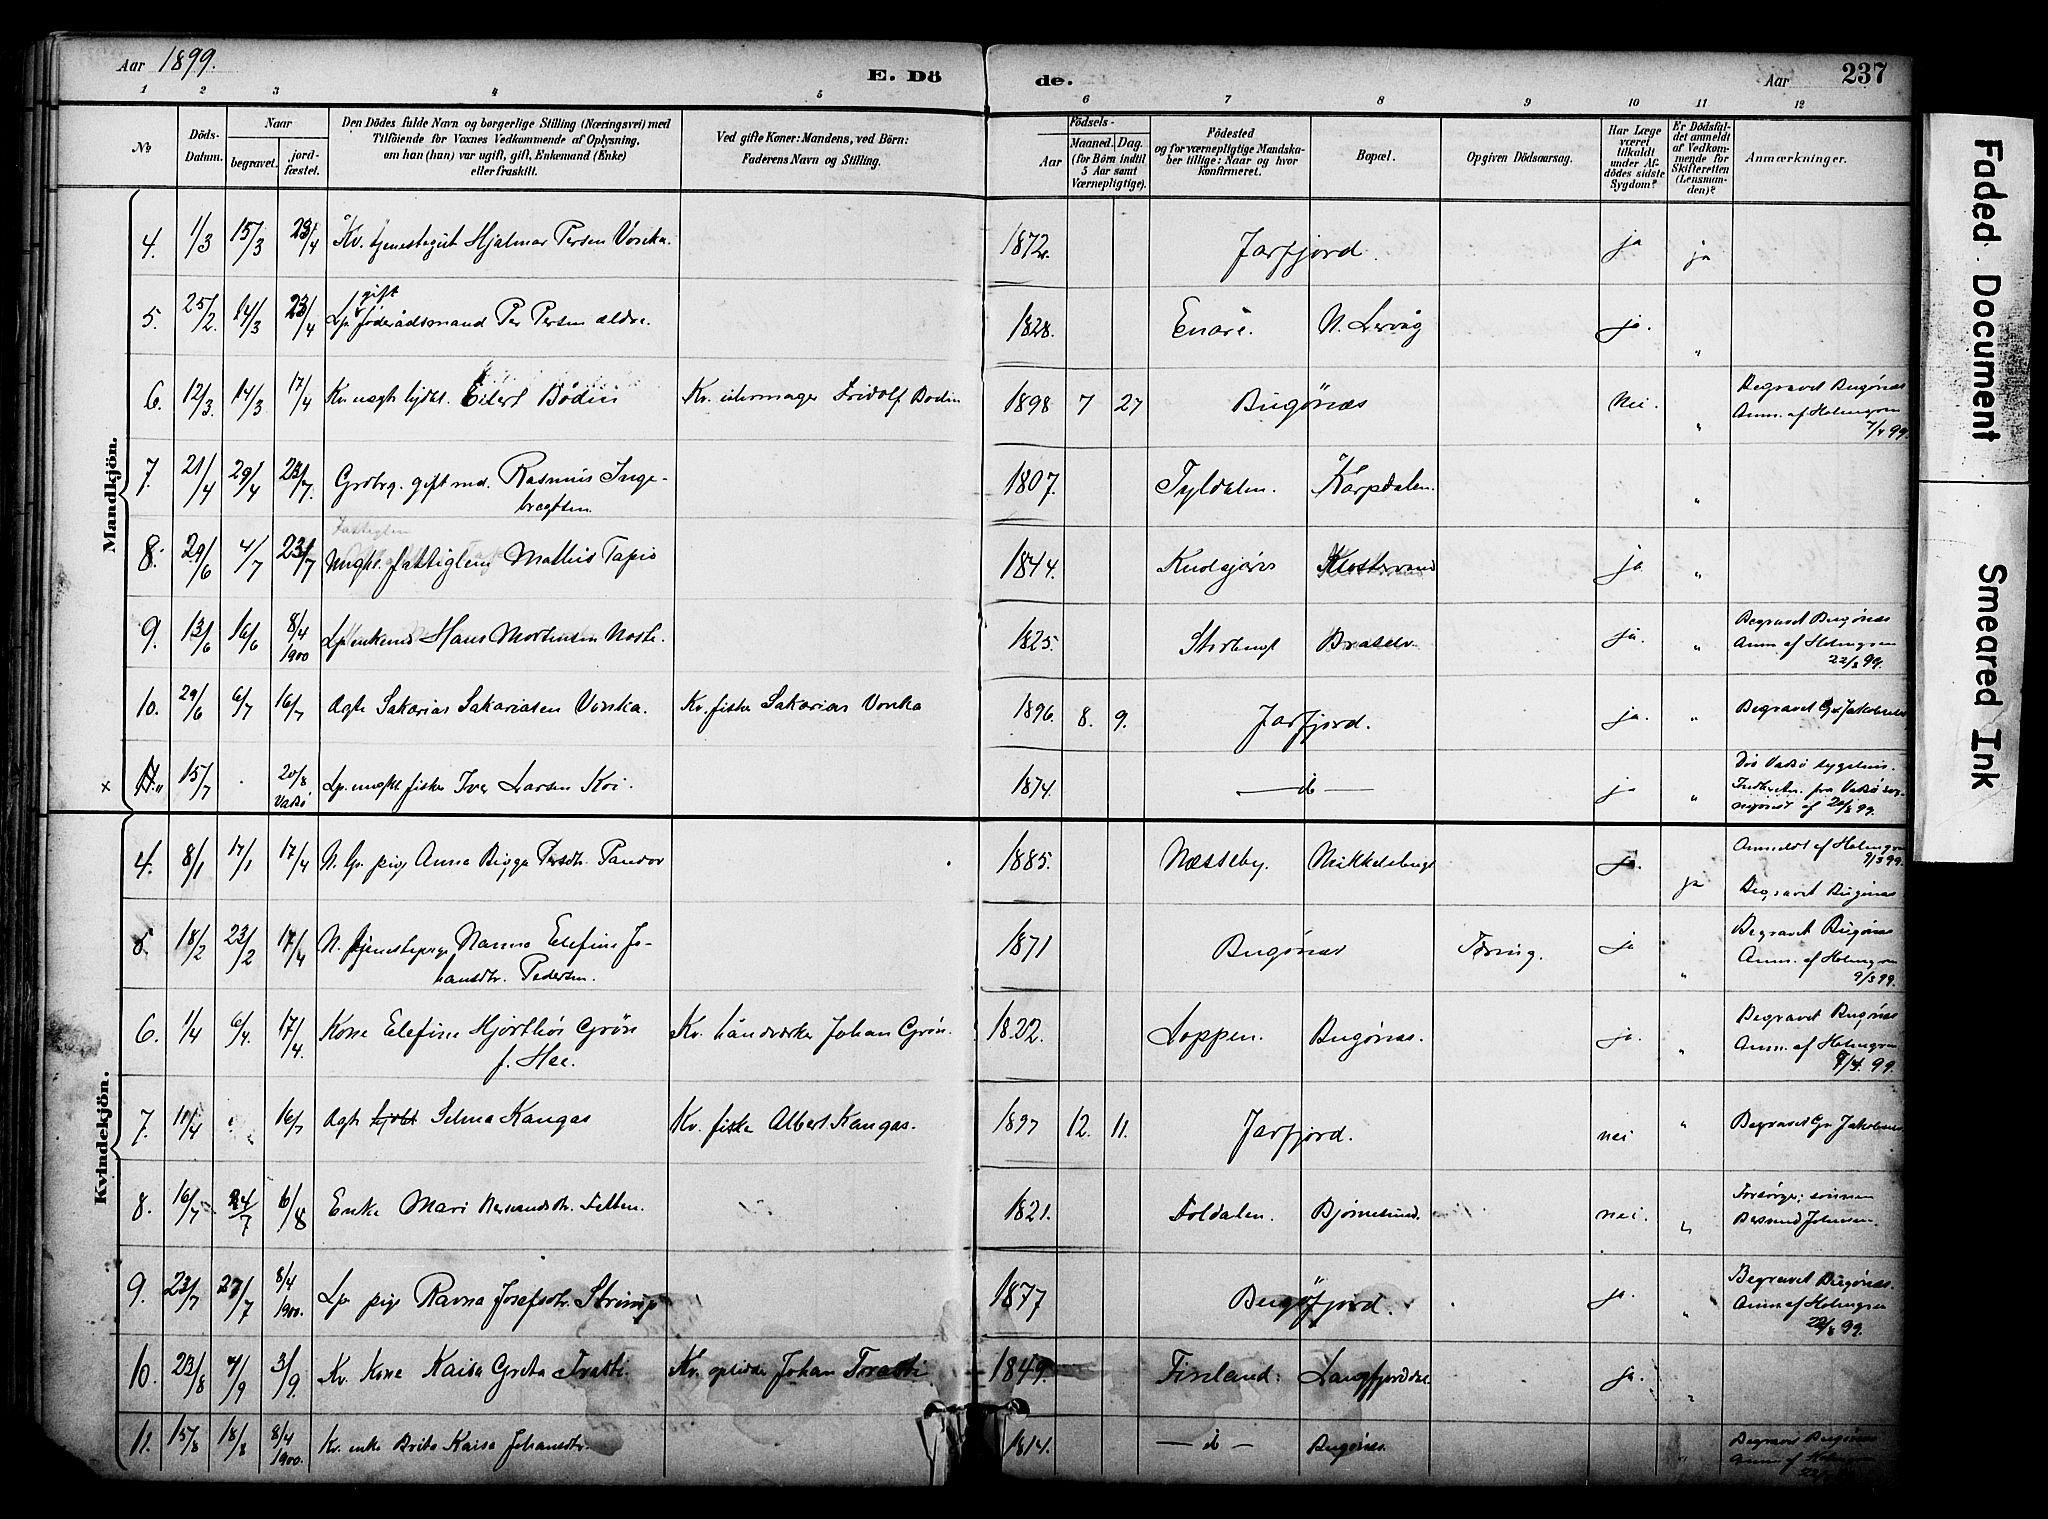 Aar 1899.
E. Dö
de.
Aar
237
1 2 3 4 5 6 7 8 9 10 11 12
No
Döds-
Datum.
Naar
begravet.
jord-
fæstet.
Den Dödes fulde Navn og borgerlige Stilling (Næringsvei) med
Tilföiende for Voxnes Vedkommende af Oplysning,
om han (hun) var ugift, gift, Enkemand (Enke)
eller fraskilt.
Ved gifte Koner: Mandens, ved Börn:
Faderens Navn og Stilling.
Födsels-
Aar
Maaned. Dag.
(for Börn indtil
5 Aar samt
Værnepligtige).
Födested
og for værnepligtige Mandska-
ber tillige: Naar og hvor
konfirmeret.
Bopæl.
Opgiven Dödsaarsag.
Har Læge
været
tilkaldt
under Af-
dödes sidste
Sygdom?
Er Dödsfal-
det anmeldt
af Vedkom-
mende for
Skifteretten
(Lensman-
den)?
Anmærkninger.
Mandkjön.
4. 1/3 15/3 23/4 Kv. tjenestegut Hjalmar Persen Vonka. 1872. Jarfjord. ja ja
5. 25/2. 14/3 23/4 Lp. gift föderådsmand Per Persen ældre. 1828. Enare. N. Lervåg ja. "
6. 12/3. 14/3 17/4 Kv. uægt Eilert Bodin Kv. Fridolf Bodin 1898 7 27 Bugönæs Nei. " Begravet Bugönæs
Anm. af Holmgren
7/4 99.
7. 21/4 29/4 23/7. Grdbrg. gift md. Rasmus Inge-
bregtsen. 1807. Tyldalen. Karpdalen. "
8. 29/6 4/7 23/7 fattiglem Mathis Tapio 1844. Klostervand ja "
9. 13/6 16/6 8/4 1900 Lp. enkemd Hans Mortensen Noste. 1825. Storbugt Brasselv ja. " Begravet Bugönæs
Anm. af Holmgren
22/8 99.
10. 29/6 6/7 16/7 Ægte Sakarias Sakariasen Vonka. Kv. fisker Sakarias Vonka 1896. 8. 9. Jarfjord. ja. " Begravet Gr. Jakobselv
x 11. 15/7 . 20/8 Vadsö Lp. fisker Iver Larsen Koi 1874. — do — ja " Död Vadsö sygehus.
fra Vadsö
af 20/8 99.
Kvindekjön.
4. 8/1 17/1 17/4 N. Gr. pige Anna Birgga Persdtr. Pandor 1885. Næsseby. Mikkelsbugt ja. ja Anmeldt af Holmgren
9/3 99.
Begravet Bugönæs
5. 18/2 23/2 17/4 N. tjenestepige Nanna Elefine Jo-
hansdtr. Pedersen. 1871 Bugönæs Tæring. ja " Begravet Bugönæs
Anm. af Holmgren
9/3 99.
6. 1/4 6/4. 17/4. Kone Elefine Hjorthöi Grön
f. Hee. Kv. håndværker Johan Grön. 1822. Loppen. Bugönæs. ja. " Begravet Bugönæs
Anm. af Holmgren
8/4. 99.
7. 11/4 . 16/7 Ægte Selma Kangas Kv. fisker Albert Kangas. 1897 12. 11. Jarfjord. nei " Begravet Gr. Jakobselv
8. 16/7 24/7 6/8 Enke Mari 1821. Foldalen. Björnesund. nei. " Forsörger: sönnen
Johnsen.
9. 23/7 27/7 8/4 1900. Lp. pige Ravna Josefsdtr. Strimp 1877 Bugöfjord. ja. " Begravet Bugönæs.
Anm af Holmgren
22/8 99.
10. 23/8 4/9 3/9. Kv. Kone Kaisa Greta Tratti. Kv. Johan Tratti. 1849. Finland: Langfjorddal ja. "
11. 15/8 18/8 8/4 1900. Kv. enke Brita Kaisa Johansdtr. 1814. — do — Bugönæs. " Begravet Bugönæs
Anm af Holmgren
Faded Document
Smeared Ink